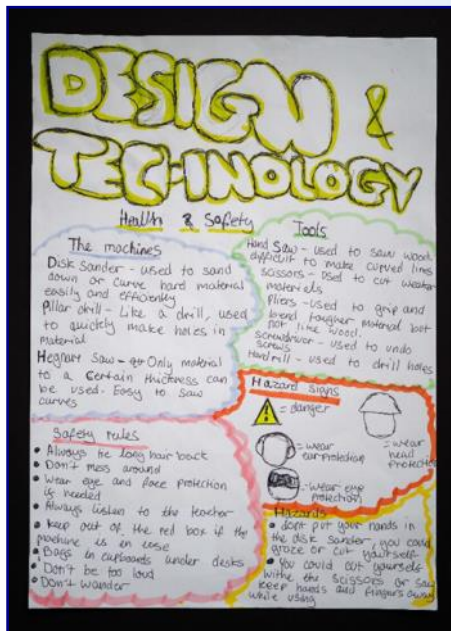 DESIGN &
TECHNOLOGY
Health & Safety
The machines
Disk sander - used to sand
down or curve hard material
easily and efficiently
Pillar drill - Like a drill, used
to quickly make holes in
material
Hegner saw - Only material
to a certain thickness can
be used. Easy to saw
curves
Tools
Hand Saw - used to saw wood
difficult to make curved lines
Scissors - used to cut weaker
materials
Pliers - used to grip and
bend tougher material but
not like wood.
Screwdriver - used to undo
screws
Handrill - used to drill holes
Hazard signs
= danger
= wear
ear protection
= wear
head
protection
= wear eye
protection
Safety rules
• Always tie long hair back
• Don't mess around
• Wear eye and face protection
is needed
• Always listen to the teacher
• keep out of the red box if the
machine is in use
• Bags in cupboards under desks
• Don't be too loud
• Don't wander
Hazards
• dont put your hands in
the disk sander, you could
graze or cut yourself
• You could cut yourself
withe the scissors or saw
keep hands and fingers away
while using